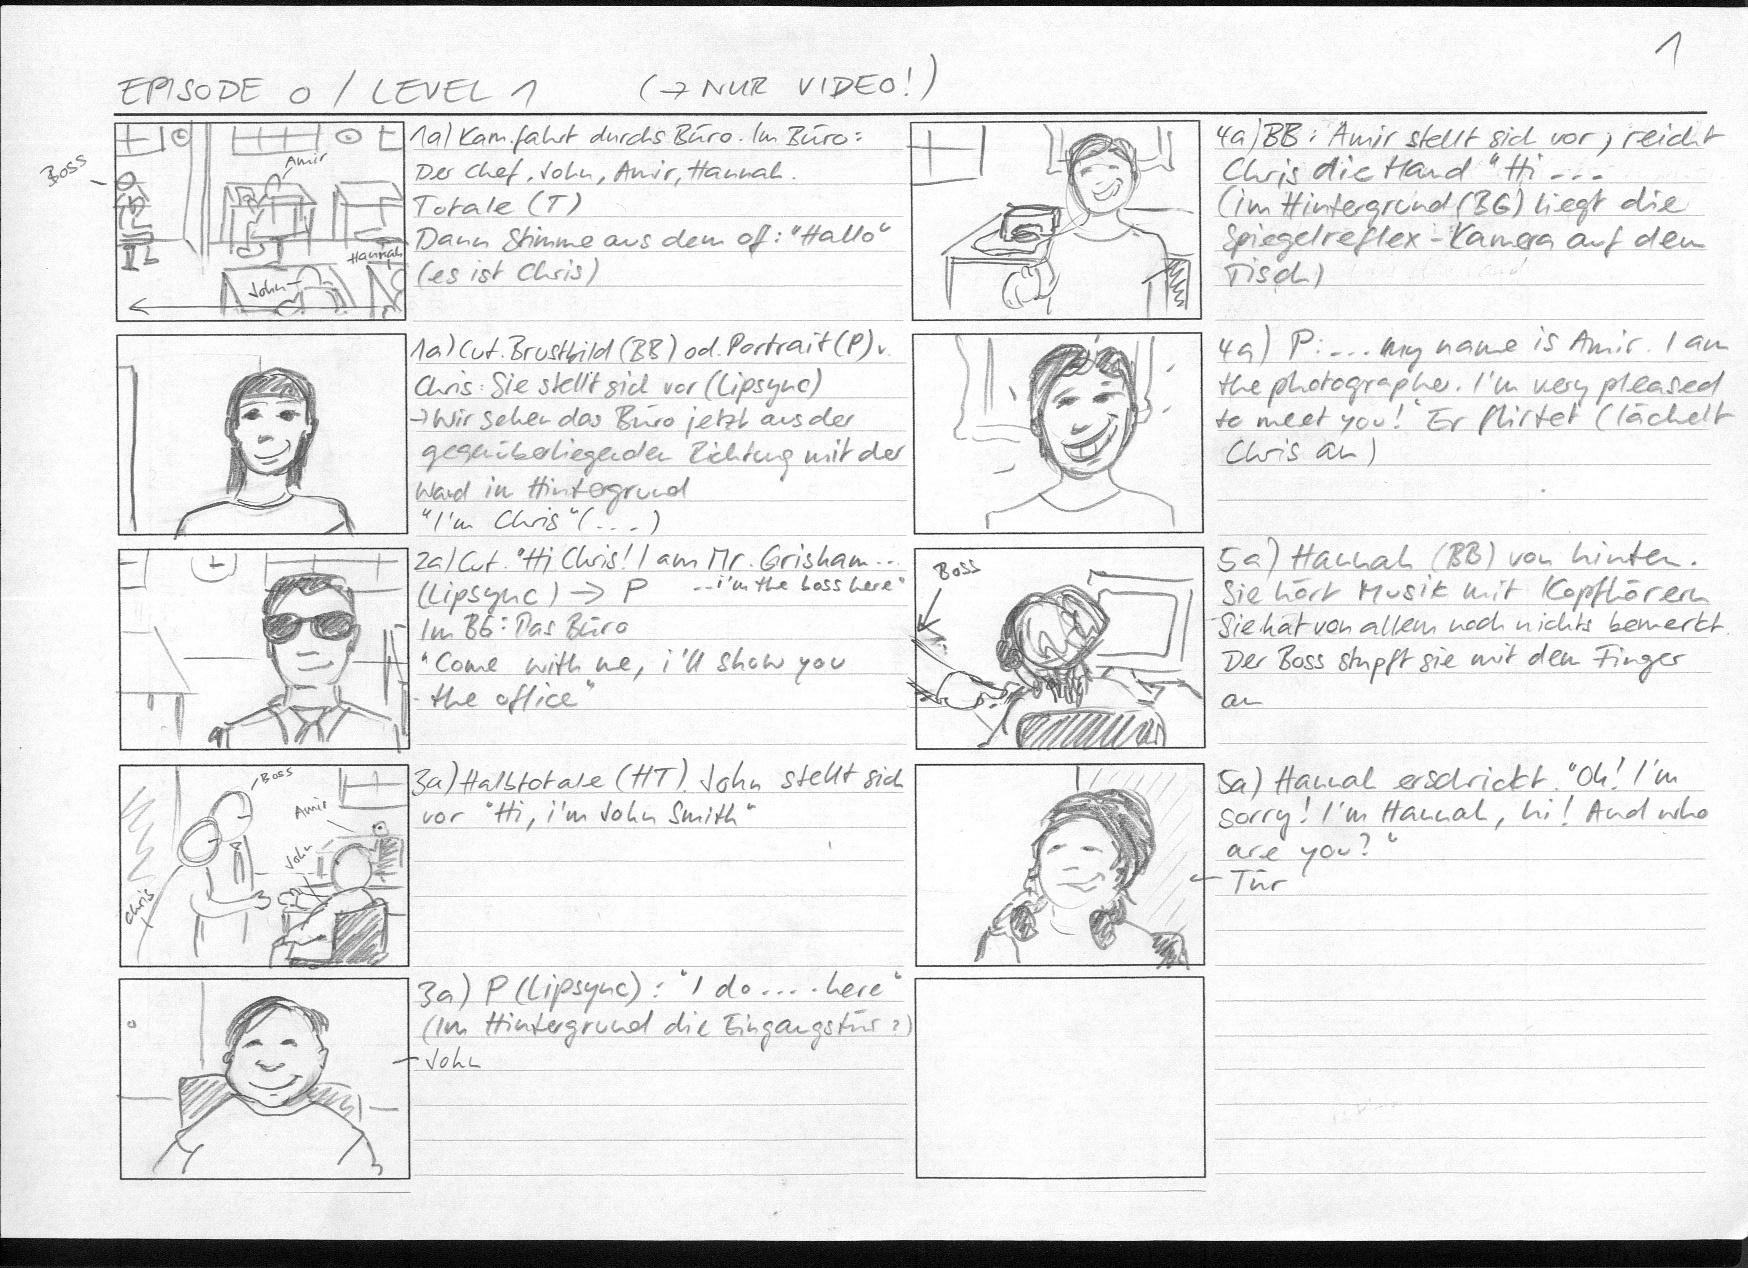 1
EPISODE 0 / LEVEL 1 (→ NUR VIDEO!)
Boss
Amir
Hannah
John
1a) Kam.fahrt durchs Büro. Im Büro:
Der Chef, John, Amir, Hannah.
Totale (T)
Dann Stimme aus dem off: "Hallo"
(es ist Chris)
1a) Cut. Brustbild (BB) od. Portrait (P) v.
Chris: Sie stellt sich vor (Lipsync)
→ Wir sehen das Büro jetzt aus der
gegenüberliegenden Richtung mit der
Wand im Hintergrund
"I'm Chris" (....)
2a) Cut. "Hi Chris! I am Mr. Grisham...
(Lipsync) → P ...i'm the boss here"
Im BG: Das Büro
"Come with me, i'll show you
the office"
Boss
Amir
John
Chris
3a) Halbtotale (HT). John stellt sich
vor "Hi, i'm John Smith"
3a) P (Lipsync): "I do .... here"
(Im Hintergrund die Eingangstür?)
John
4a) BB: Amir stellt sich vor, reicht
Chris die Hand "Hi ...
(im Hintergrund (BG) liegt die
Spiegelreflex-Kamera auf dem
Tisch)
4a) P: ... my name is Amir. I am
the photographer. I'm very pleased
to meet you!" Er flirtet (lächelt
Chris an)
Boss
5a) Hannah (BB) von hinten.
Sie hört Musik mit Kopfhörern
Sie hat von allem noch nichts bemerkt.
Der Boss stupft sie mit dem Finger
an
5a) Hannah erschrickt. "Oh! I'm
sorry! I'm Hannah, hi! And who
are you?"
Tür